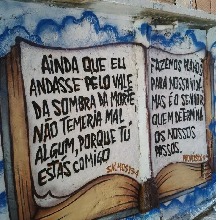 AINDA QUE EU
ANDASSE PELO VALE
DA SOMBRA DA MORTE
NÃO TEMERIA MAL
ALGUM, PORQUE TU
ESTÁS COMIGO
SALMOS 23:4
FAZEMOS PLANOS
PARA NOSSA VIDA,
MAS É O SENHOR
QUEM DETERMINA
OS NOSSOS
PASSOS.